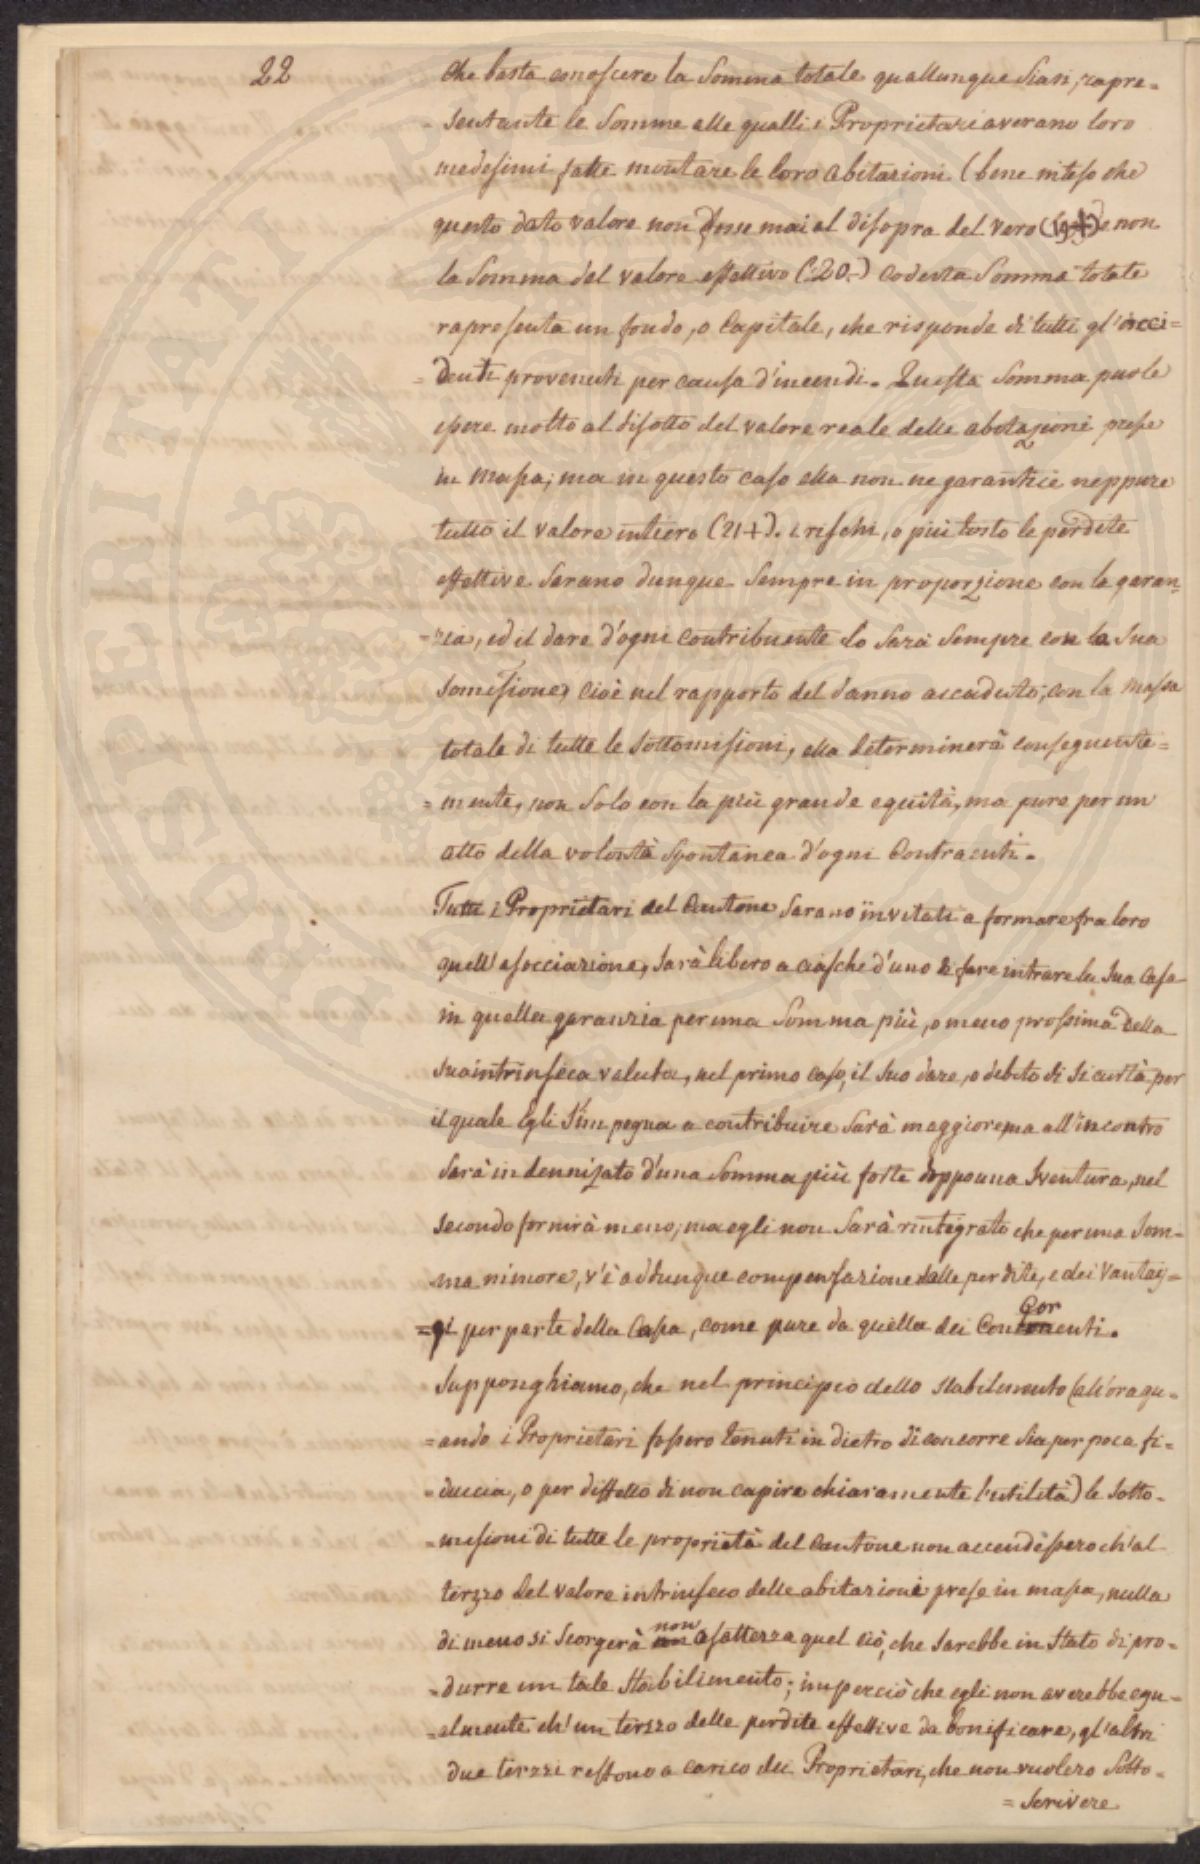 22
che basta conoscere la Somma totale quallunque Siasi, rapre-
-sentante le Somme alle qualli i Proprietari averano loro
medesimi fatte montare le loro abitazioni (bene inteso che
questo dato valore non fosse mai al disopra del vero (19+) e non
la Somma del valore effettivo (:20:) codesta Somma totale
rapresenta un fondo, o Capitale, che risponde di tutti gl'acci=
=denti provenuti per causa d'incendi. Questa Somma puole
essere molto al disotto del valore reale delle abitazioni prese
in massa; ma in questo caso ella non ne garantice neppure
tutto il valore intiero (21+). i rischi, o più tosto le perdite
effettive Sarano dunque Sempre in proporzione con la garan=
=zia, ed il dare d'ogni contribuente lo Sarà Sempre con la Sua
Somissione, cioè nel rapporto del danno accaduto, con la massa
totale di tutte le Sottomissioni, ella determinerà conseguente=
=mente, non Solo con la più grande equità, ma pure per un
atto della volontà Spontanea d'ogni Contraenti.
Tutti i Proprietari del Cantone Sarano invitati a formare fra loro
quell'assocciazione, Sarà libero a ciasche d'uno di fare intrare la Sua Casa
in quella garanzia per una Somma più, o meno prossima della
Sua intrinseca valuta, nel primo caso, il Suo dare, o debito di Sicurtà per
il quale Egli S'impegna a contribuire Sarà maggiore, ma all'incontro
Sarà indennizato d'una Somma più forte doppo una Sventura, nel
secondo fornirà meno; ma egli non Sarà rintegrato che per una Som-
ma nimore, v'è addunque compensazione dalle perdite, e dei Vantag=
=gi per parte della Cassa, come pure da quella dei Concorenti.
Supponghiamo, che nel principio dello stabilimento (all'ora qu-
=ando i Proprietari fossero tenuti in dietro di concorre Sia per poca fi=
=duccia, o per diffetto di non capire chiaramente l'utilità) le Sotto-
=missioni di tutte le proprietà del Cantone non accendèssero ch'al
terzzo del valore intrinseco delle abitazioni prese in massa, nulla
di meno si Scorgerà non asattezza quel ciò, che Sarebbe in Stato di pro=
=durre un tale Stabilimento; imperciò che egli non averebbe egu=
=almente ch'un terzzo delle perdite effettive da bonificare, gl'altri
due terzzi restono a carico dei Proprietari, che non vuolero Sotto=
=Scrivere
PROSPERITATI PUBLICAE